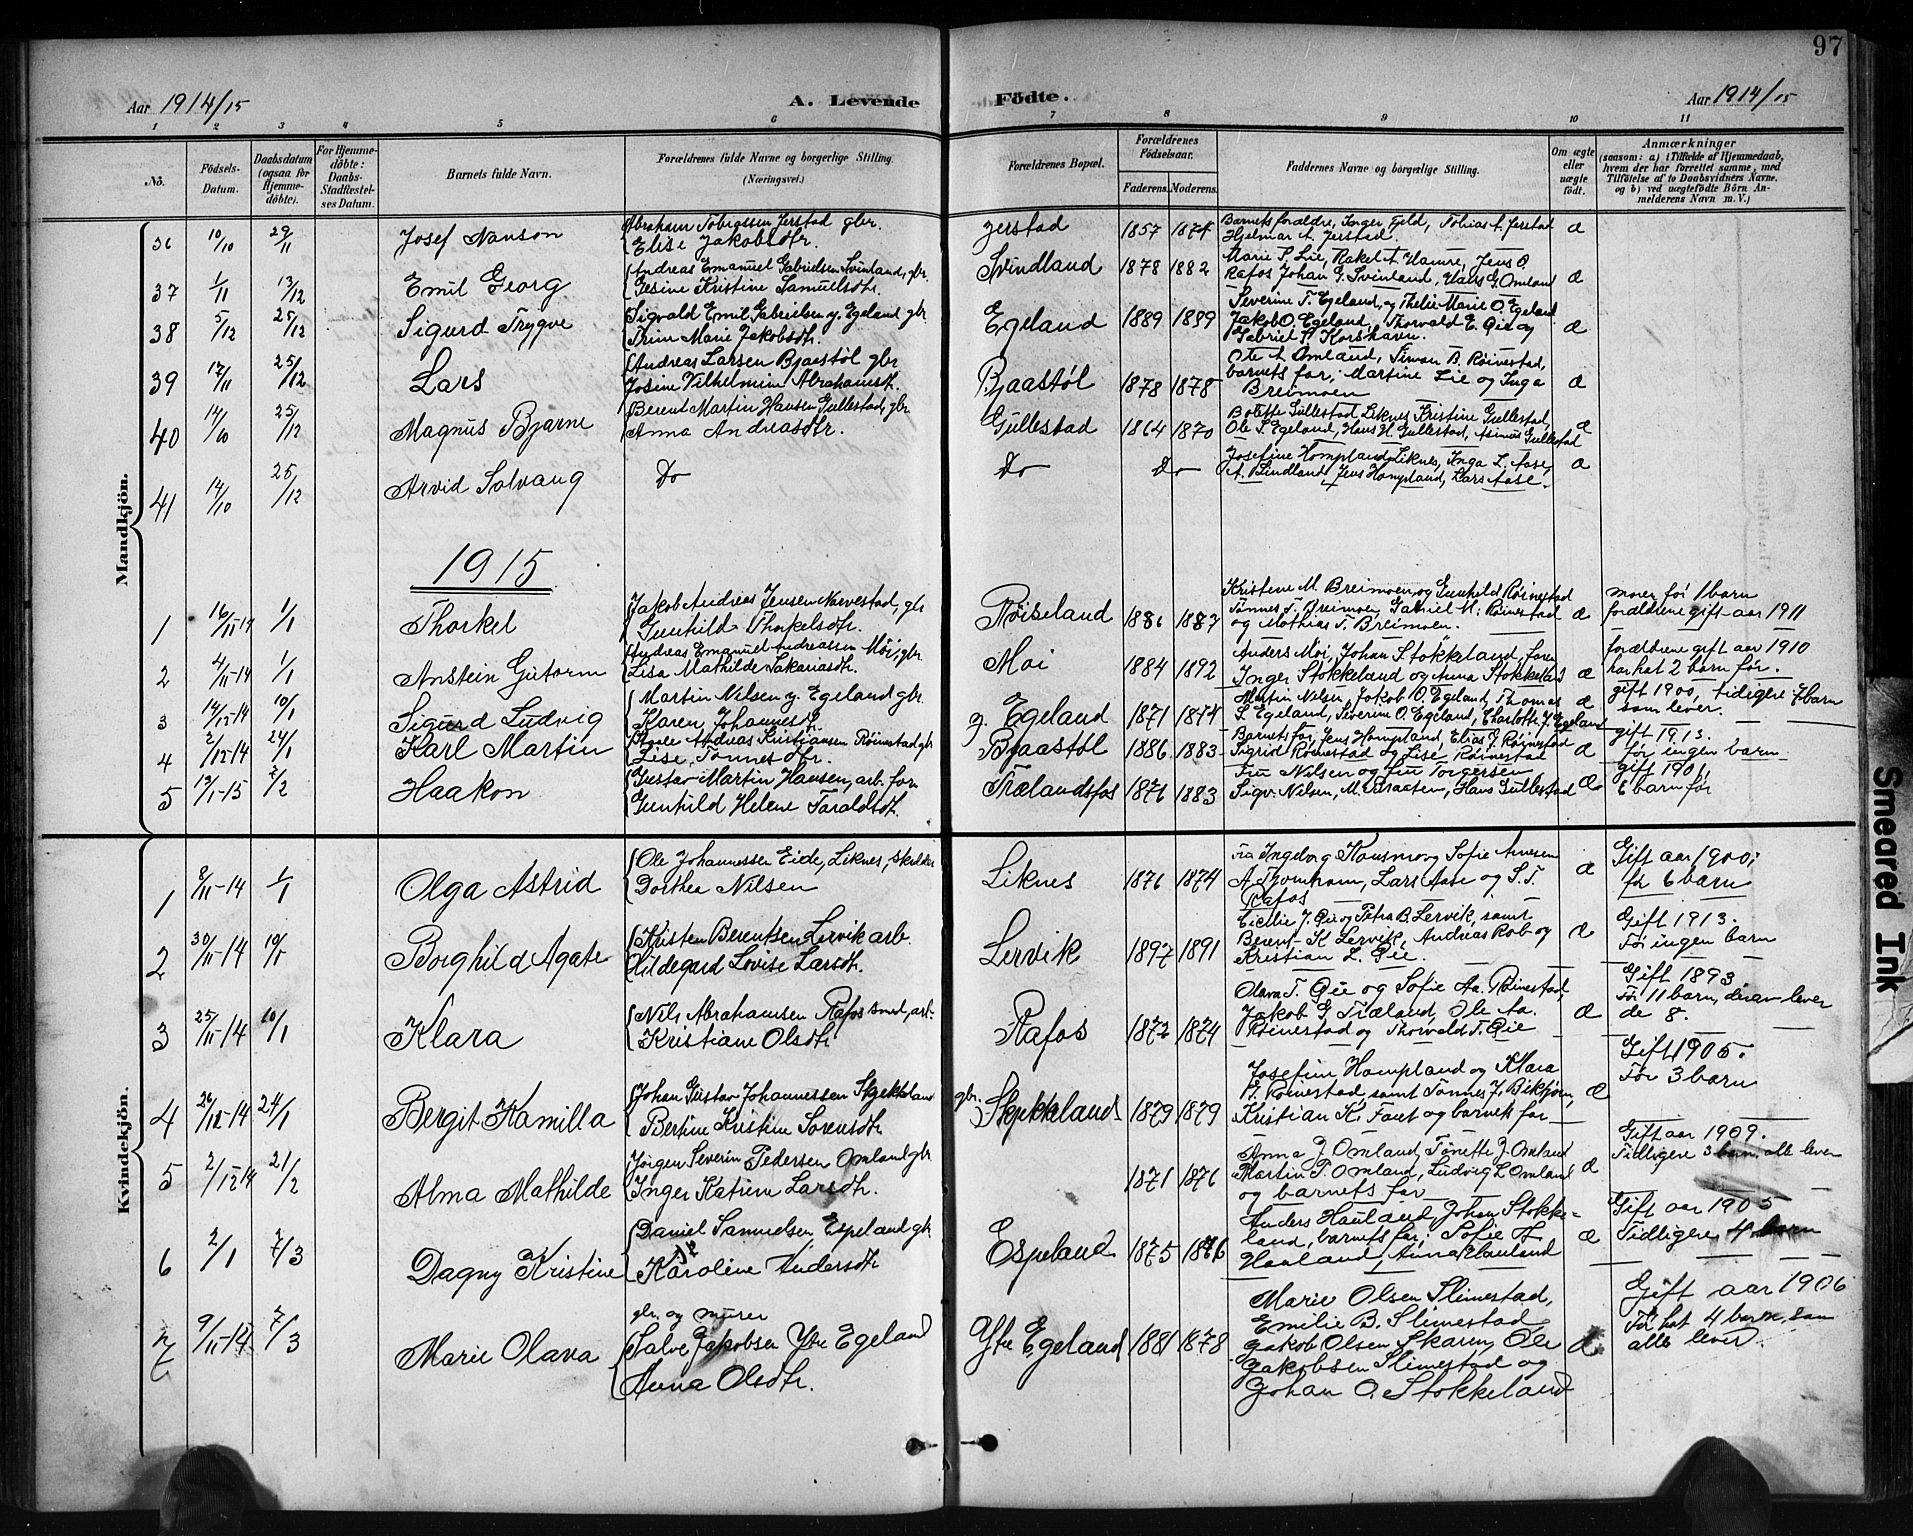 97
Aar 1914/15
A. Levende
Födte.
Aar 1914/15
1 2 3 4 5 6 7 8 9 10 11
No.
Födsels-Datum.
Daabsdatum (ogsaa for Hjemmedöbte).
For Hjemmedöbte: Daabs-Stadfestelses Datum.
Barnets fulde Navn.
Forældrenes fulde Navne og borgerlige Stilling.
(Næringsvei.)
Forældrenes Bopæl.
Forældrenes Födselsaar.
Faderens. Moderens.
Faddernes Navne og borgerlige Stilling.
Om ægte eller uægte födt.
Anmærkninger
(saasom: a) i Tilfælde af Hjemmedaab, hvem der har forrettet samme, med Tilföielse af to Daabsvidners Navne, og b) ved uægtefödte Börn Anmelderens Navn m. V.)
Mandkjön.
36 10/10 29/11 Josef Nanson
Abraham Tobiassen Jerstad gbr.
Elise Jakobsdtr.
Jerstad 1857 1874
Barnets forældre, Inger Fjeld, Tobias A. Jerstad
Hjelmar A. Jerstad. æ
37 1/11 13/12 Emil Georg
Andreas Emanuel Gabrielsen Svinland, gbr
Gesine Kristine Samuelsdtr.
Svindland 1878 1882
Marie S. Lie, Rakel A. Hamre, Jens O.
Rafos Johan G. Svinland, Hans G. Omland æ
38 5/12 25/12 Sigurd Trygve
Sigvald Emil Gabrielsen y. Egeland gbr
Trine Marie Jakobsdtr.
Egeland 1889 1889
Severine T. Egeland, og Thelie Marie O. Egeland
Jakob O. Egeland, Thorvald E. Øie og
Gabriel S. Korshavn. æ
39 17/11 25/12 Lars
Andreas Larsen Bjaastøl gbr
Josine Vilhelmine Abrahamsdt.
Bjaastøl 1878 1878
Ole A. Omland, Simon B. Röinestad,
barnets far, Martine Lie og Inga
Breimoen æ
40 14/10 25/12 Magnus Bjarne
Berent Martin Hansen Gullestad, gbr
Anna Andreasdtr.
Gullestad 1864 1870
Bolette Gullestad Liknes, Kristine Gullestad,
Ole S. Egeland, Hans H. Gullestad, Asmus Gullestad æ
41 14/10 25/12 Arvid Solvang
Do
Do Do
Josefine Hompland Liknes, Inga L. Aase,
A. Lindland, Jens Hompland, Lars Aase. æ
1915
1 16/11-14 1/1 Thorkel
Jakob Andreas Jensen Narvestad, gbr
Gunhild Thorkelsdtr.
Røiseland 1886 1887
Kristine M. Breimoen, og Gunhild Röinestad
Tönnes T. Breimoen, Gabriel M. Röinestad
og Mathias T. Breimoen. æ
moren før 1 barn
forældrene gift aar 1911
2 4/11-14 1/1 Anstein Gutorm
Andreas Emanuel Andreassen Möi, gbr
Lisa Mathilde Sakariasdtr.
Moi 1884 1892
Anders Moi, Johan Stokkeland, faren
Inger Stokkeland og Anna Stokkeland æ
forældrene gift aar 1910
har hat 2 barn før.
3 14/12-14 10/1 Sigurd Ludvig
Martin Nilsen y. Egeland gbr
Karen Johannesdt.
y. Egeland 1871 1874
Martin Nilsen, Jakob O. Egeland, Thomas
S. Egeland, Severine O. Egeland, Charlotte J. Egeland æ
gift 1900, tidligere 7 barn
som lever.
4 2/12-14 24/1 Karl Martin
Andreas Kristiansen Röinestad gbr
Lise Tønnesdtr.
Bjaastøl 1886 1883
Barnets far, Jens Hompland, Elias J. Röinestad
Sigrid Röinestad og Lise Röinestad æ
gift 1913.
før ingen barn
5 13/1-15 7/2 Haakon
Gustav Martin Hansen, arb. for.
Gunhild Helene Taraldsdt.
Trælandsfos 1876 1883
Fru Nilsen og fru Torgersen
Sigv. Nilsen, M. Braaten, Hans Gullestad æ
Gift 1901,
6 barn før
Kvindekjön.
1 8/11-14 1/1 Olga Astrid
Ole Johannessen Eide, Liknes, skreder
Dorthea Nilsen
Liknes 1876 1874
Fra Ingeborg Kausmo og Sofie Arnesen
A. Tjomham, Lars Aase og S. T.
Rafos æ
Gift aar 1900;
før 6 barn
2 30/11-14 10/1 Borghild Agate
Kristen Berentsen Lervik arb.
Hildegard Lovise Larsdt.
Lervik 1897 1891
Cecilie J. Øie og Petra B. Lervik, samt
Berent K. Lervik, Andreas Rob og
Kristian L. Øie. æ
Gift 1913.
Før ingen barn
3 25/11-14 10/1 Klara
Nils Abrahamsen Rafos smed, arb.
Kristiane Olsdtr
Rafos 1872 1874
Olava T. Øie og Sofie Aa. Röinestad,
Jakob G. Træland, Ole Aa.
Röinestad og Thorvald T. Øie æ
Gift 1893
Før 11 barn, derav lever
de 8.
4 26/12-14 24/1 Bergit Kamilla
Johan Gustav Johannessen Skjekkeland
Bertine Kristine Sørensdtr
gbr. Skjekkeland 1879 1879
Josefine Hompland og Klara
H. Röinestad, samt Tönnes J. Birkjem,
Kristian K. Faret og barnets far æ
Gift 1905.
Før 3 barn
5 2/12 14 21/2 Alma Mathilde
Jørgen Severin Pedersen Omland gbr
Inger Katrine Larsdtr.
1871 1876
Anna J. Omland, Tønette J. Omland
Martin P. Omland, Ludvig L. Omland
og barnets far æ
Gift aar 1909.
Tidligere 3 barn, alle lever
6 2/1 7/3 Dagny Kristine
Daniel Samuelsen Espeland gbr
Karoline Andersdtr
Espeland 1875 1876
Anders Hauland, Johan Stokke-
land, barnets far, Sofie H.
Hauland, Anna Hauland æ
Gift aar 1905
Tidligere 4 barn
7 9/11-14 7/3 Marie Olava
gbr. og murer
Salve Jakobsen Ytre Egeland
Anna Olsdtr.
Ytre Egeland 1881 1878
Marie Olsen Slimestad,
Emilie B. Slimestad
Jakob Olsen Skaren, Ole
Jakobsen Slimestad og
Johan O. Stokkeland æ
Gift aar 1906
Før hat 4 barn, som
alle lever.
Smeared Ink